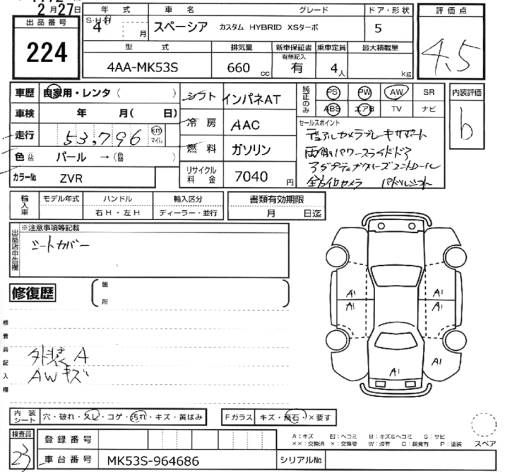 2月27日
出品番号 224
年式 車名 グレード ドア・形状 評価点
S・H・R 4年 月 スペーシア カスタム HYBRID XSターボ 5 4.5
型式 排気量 新車保証書 乗車定員 最大積載量
有無記入
4AA-MK53S 660 cc 有 4人 kg
車歴 自家用・レンタ( )
車検 年 月( 日)
走行 53,796 km マイル
色 パール →( )
カラーNo ZVR
シフト インパネAT
冷房 AAC
燃料 ガソリン
リサイクル料金 7040 円
純正のみ PS PW AW SR
ABS エアB TV ナビ
内装評価 b
セールスポイント
デュアルカメラブレーキサポート
両側パワースライドドア
アダプティブクルーズコントロール
全方位カメラ パドルシフト
輸入車 モデル年式 ハンドル 輸入区分 書類有効期限
右H・左H ディーラー・並行 月 日迄
※注意事項等記載
シートカバー
修復歴
A1 A1
A1 A1
A1
検査員記入欄
外装A
AWキズ
内装シート 穴・破れ・スレ・コゲ・汚れ・キズ・黄ばみ Fガラス キズ・飛石・×要す
スペア
検査員 23
登録番号
車台番号 MK53S-964686 シリアルNo